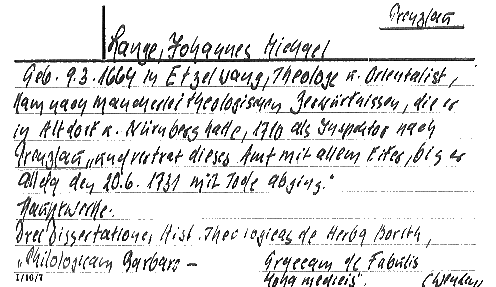 Prenzlau
Lange, Johannes Michael
Geb. 9.3.1664 in Etzelwang, Theologe u. Orientalist,
kam nach mancherlei theologischen Zerwürfnissen, die er
in Altdorf u. Nürnberg hatte, 1710 als Inspektor nach
Prenzlau „und vertrat dieses Amt mit allem Eifer, bis er
allda den 20.6.1731 mit Tode abging."
Hauptwerke:
Drei Dissertationes, Hist. Theologicas de Herba Borith,
„Philologicam Barbaro –
Graecam de Fabulis
Moha medicis".
I/16/7